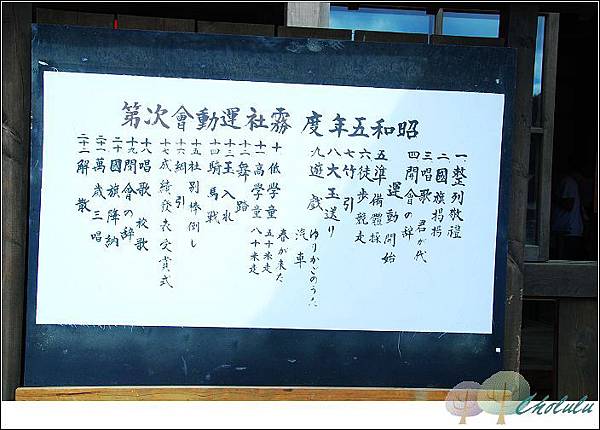 昭和五年度 霧社運動會次第
一、整列敬禮
二 國旗揭揚
三 唱歌 君が代
四 開會の辞
運動開始
五 準備體操
六 徒歩競走
七 竹引
八 大玉送り
九 遊戲 ゆりかごのうた
汽車
春が来た
十 低學童 五十米走
十一 高學童 八十米走
十二 舞踏
十三 玉入れ
十四 騎馬戰
十五 社別棒倒し
十六 綱引
十七 成績發表受賞式
十八 唱歌 校歌
十九 閉會の辞
二十 國旗降納
二十一 萬歳三唱
二十二 解散
Cholulu